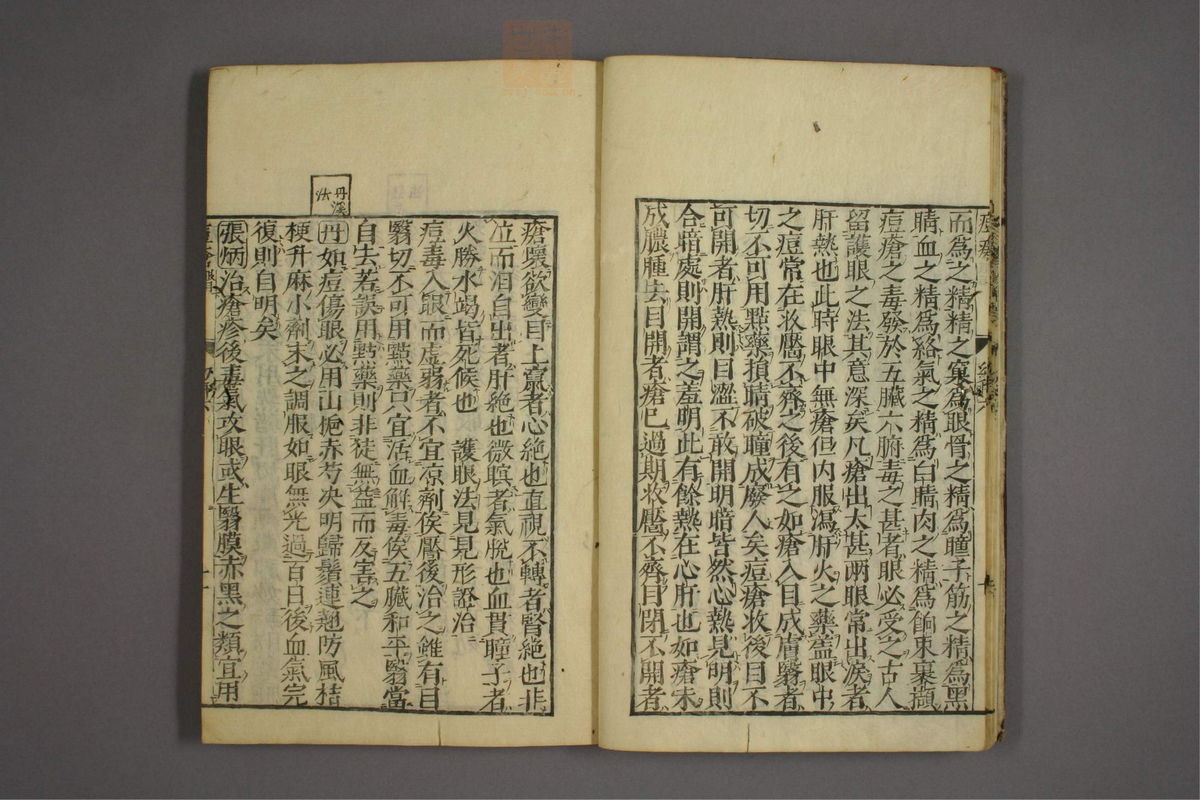 而爲之精精之窠爲眼骨之精爲瞳子筋之精爲黑
睛血之精爲絡氣之精爲白睛肉之精爲約束裹擷
痘瘡之毒發於五臟六腑毒之甚者眼必受之古人
留護眼之法其意深矣凡瘡出太甚兩眼常出淚者
肝熱也此時眼中無瘡但内服瀉肝火之藥盖眼中
之痘常在收靨不齊之後有之如瘡入目成膚翳者
切不可用點藥損睛破瞳成廢人矣痘瘡收後目不
可開者肝熱則目澀不敢開明暗皆然心熱見明則
合暗處則開謂之羞明此有餘熱在心肝也如瘡未
成膿腫去目開者瘡已過期收靨不齊目閉不開者
瘡壞欲變目上竄者心絶也直視不轉者腎絶也非
泣而泪自出者肝絶也微瞑者氣脱也血貫瞳子者
火勝水竭皆死候也 護眼法見見形證治
痘毒入眼而虚弱者不宜凉劑俟靨後治之雖有目
翳切不可用點藥只宜活血解毒俟五臟和平翳當
自去若誤用點藥則非徒無益而反害之
丹溪法
丹如痘傷眼必用山梔赤芍决明歸鬚連翹防風桔
梗升麻小劑末之調服如眼無光過百日後血氣完
復則自明矣
張炳治瘡疹後毒氣攻眼或生翳膜赤黑之類宜用